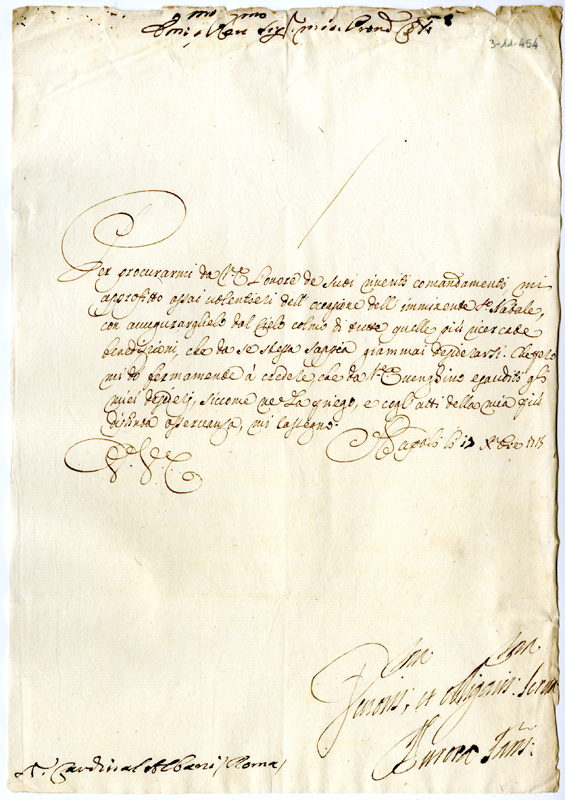 Em.mo, e Rev.mo Sig.r mio, e Prone Col.mo
3-11-454
Per procurarmi da V.E. l'onore de suoi riveriti comandamenti mi
approfitto assai volentieri dell'occasione dell'imminente S. Natale,
con augurarglielo dal Cielo colmo di tutte quelle più ricercate
benedizioni, che da se stessa sappia giammai desiderarsi. Che però
mi do fermamente à credere che da V.E. venghino esauditi gli
miei desiderij, siccome ne La priego, e cogl'atti della mia più
distinta osservanza, mi rassegno.
Napoli li 17 Xbre 1718
V. E.
Devotis.ma, et Obligatis.ma Serva
Aurora
S.r Cardinal Albani / Roma /